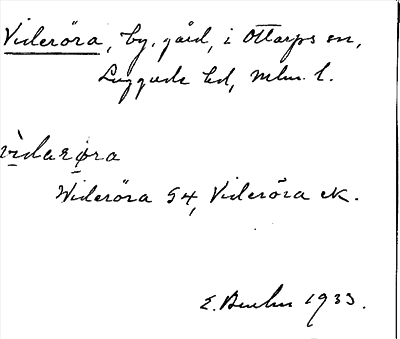 Videröra, by, gård, i Ottarps sn,
Luggude hd, Mlm. l.
vìdarøra
Wideröra 54, Videröra ek.
E. 1933.